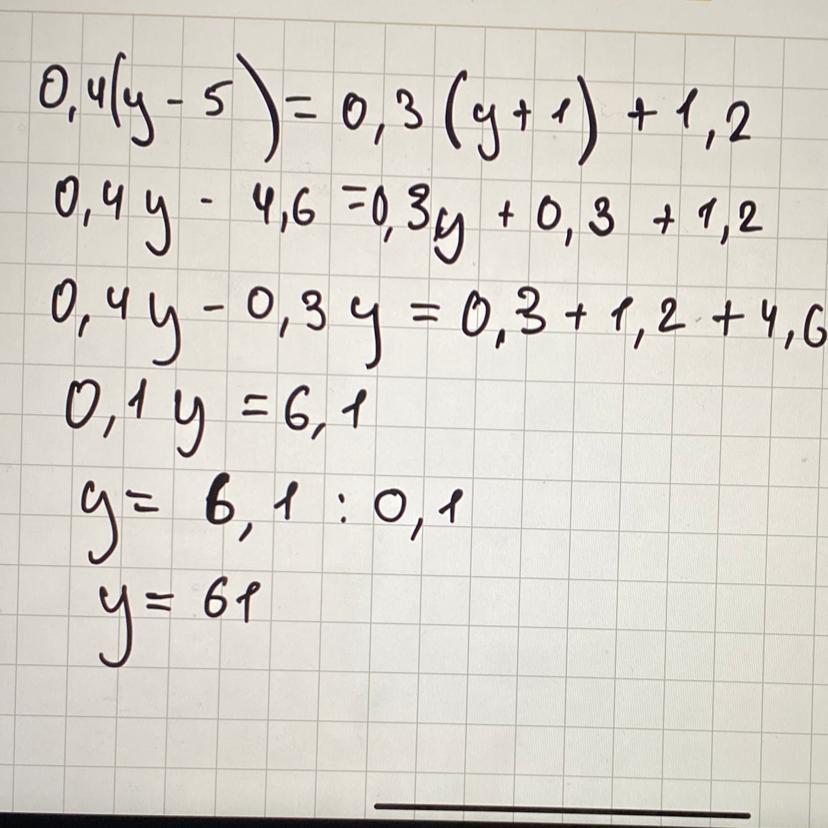 0,4(y - 5) = 0,3(y + 1) + 1,2
0,4y - 4,6 = 0,3y + 0,3 + 1,2
0,4y - 0,3y = 0,3 + 1,2 + 4,6
0,1y = 6,1
y = 6,1 : 0,1
y = 61